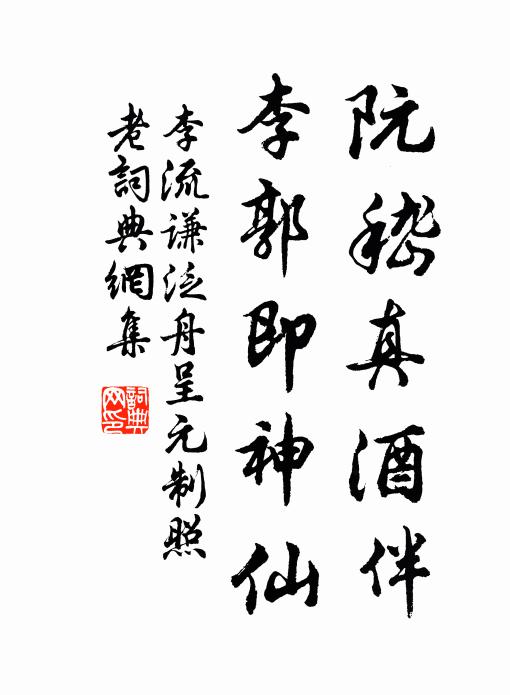 阮嵇真酒伴
李郭即神仙
李流谦泛舟呈元制照
老詞典網集
詞典网印